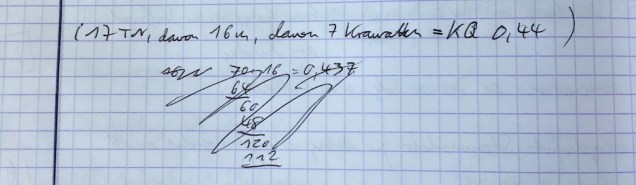 (17 TN, davon 16 m, davon 7 Krawatten = KQ 0,44 )
70 : 16 = 0,437
64
60
48
120
112